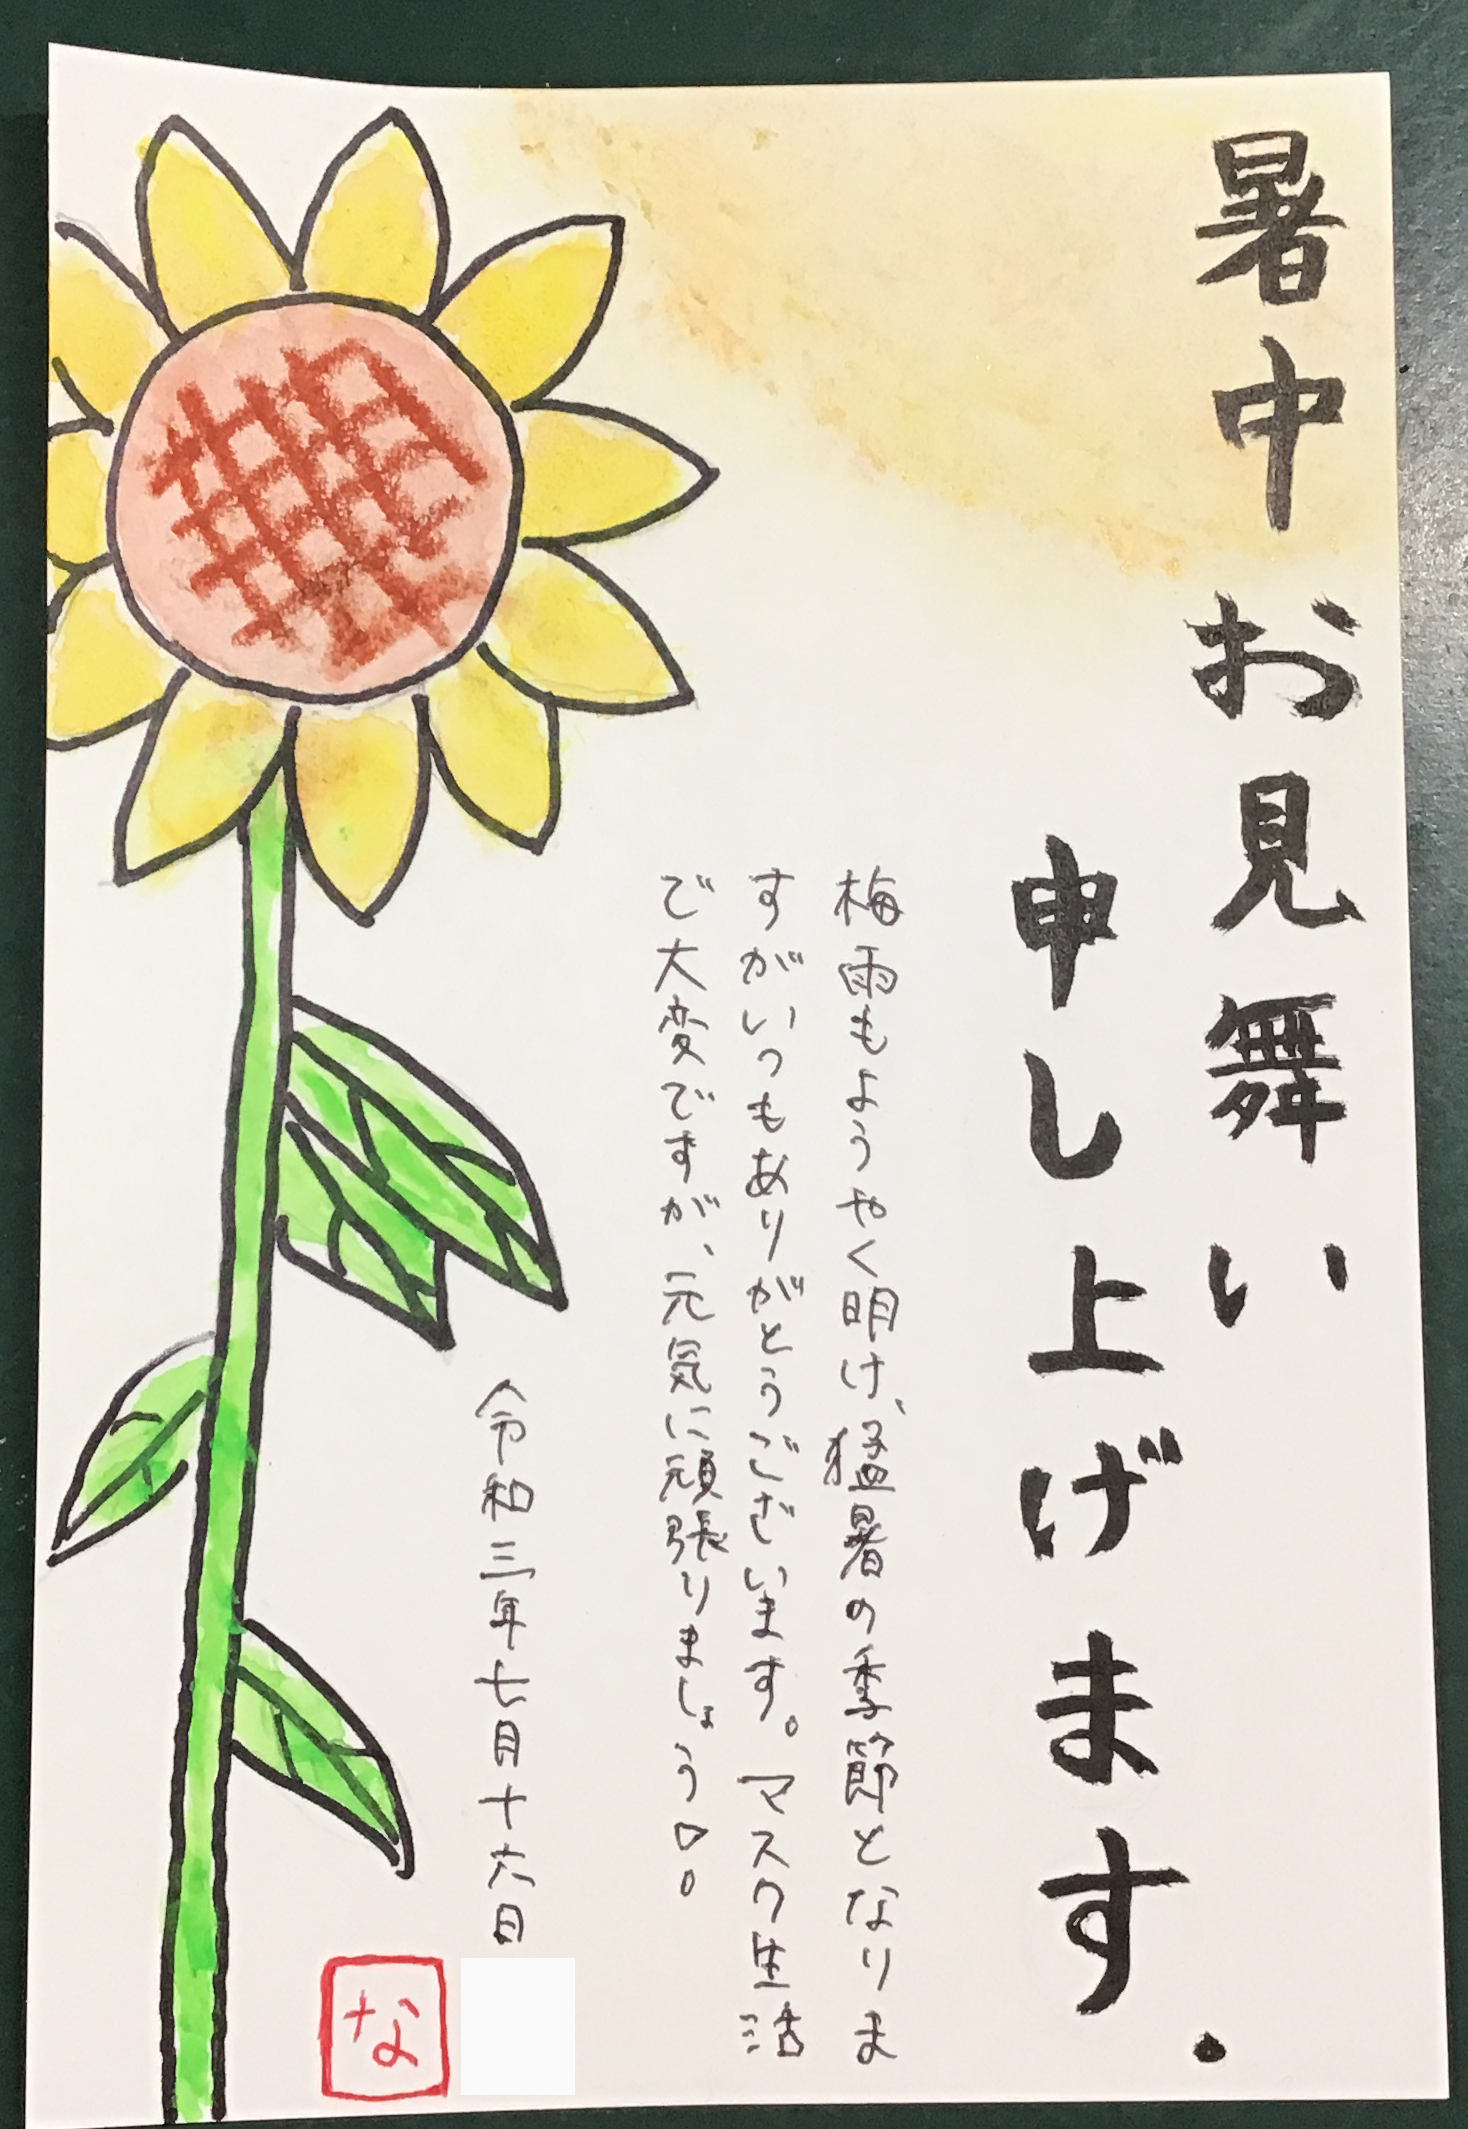 暑中お見舞い
申し上げます.
梅雨もようやく明け、猛暑の季節となりま
すがいつもありがとうございます。マスク生活
で大変ですが、元気に頑張りましょう。
令和三年七月十六日
な